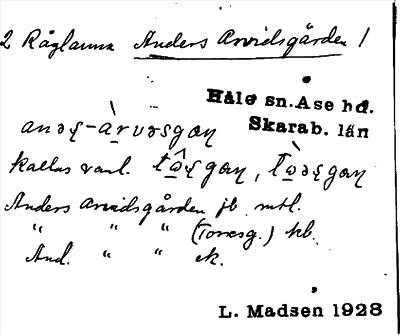 2 Råglanna Anders Arvidsgården 1
Håle sn. Åse hd.
Skarab. län
anəʂ-àrvəsgan
kallas vanl. tôʂgan, tòəʂgan
Anders Arvidsgården jb. mtl.
" " " (Torresg.) kb.
And. " " ek.
L. Madsen 1928